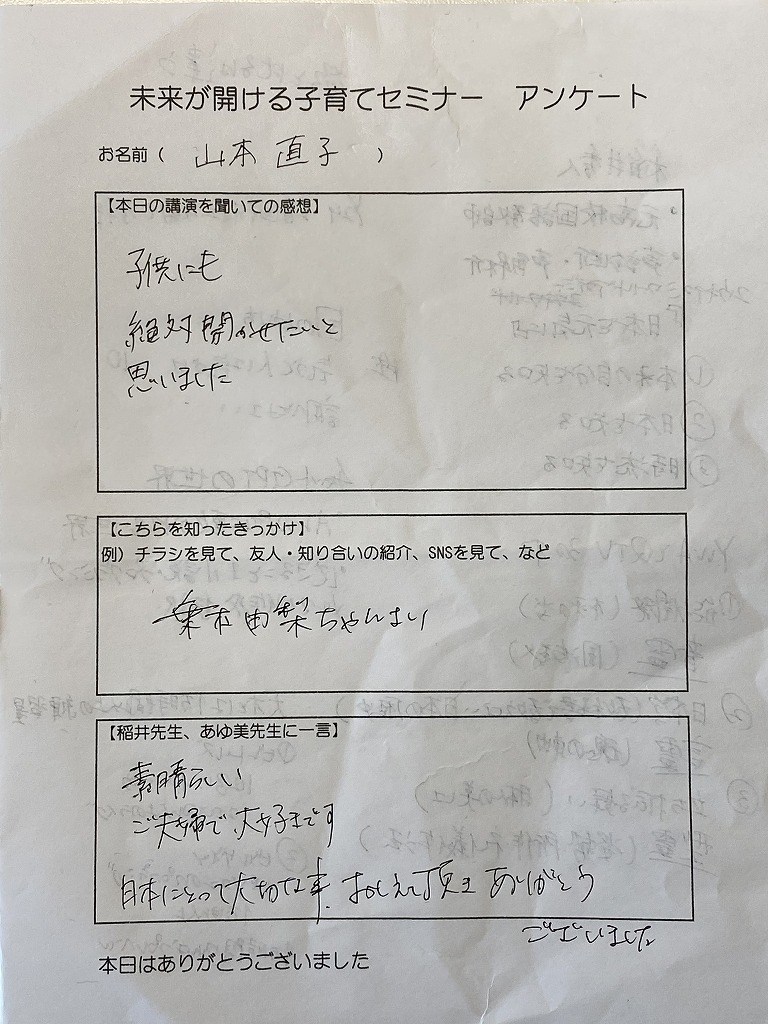 未来が開ける子育てセミナー　アンケート
お名前（ 山本 直子 ）
【本日の講演を聞いての感想】
子供にも
絶対聞かせたいと
思いました
【こちらを知ったきっかけ】
例）チラシを見て、友人・知り合いの紹介、SNSを見て、など
由梨ちゃんより
【稲井先生、あゆ美先生に一言】
素晴らしい
ご夫婦で、大好きです
日本にとって大切な事、おしえて頂き ありがとう
ございました
本日はありがとうございました